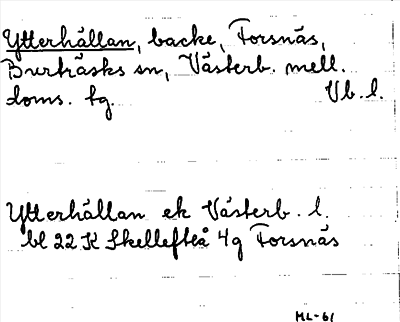 Ytterhällan, backe, Forsnäs,
Burträsks sn, Västerb. mell.
doms. tg. Vb. l.
Ytterhällan ek Västerb. l.
bl 22 K Skellefteå 4g Forsnäs
ML-61